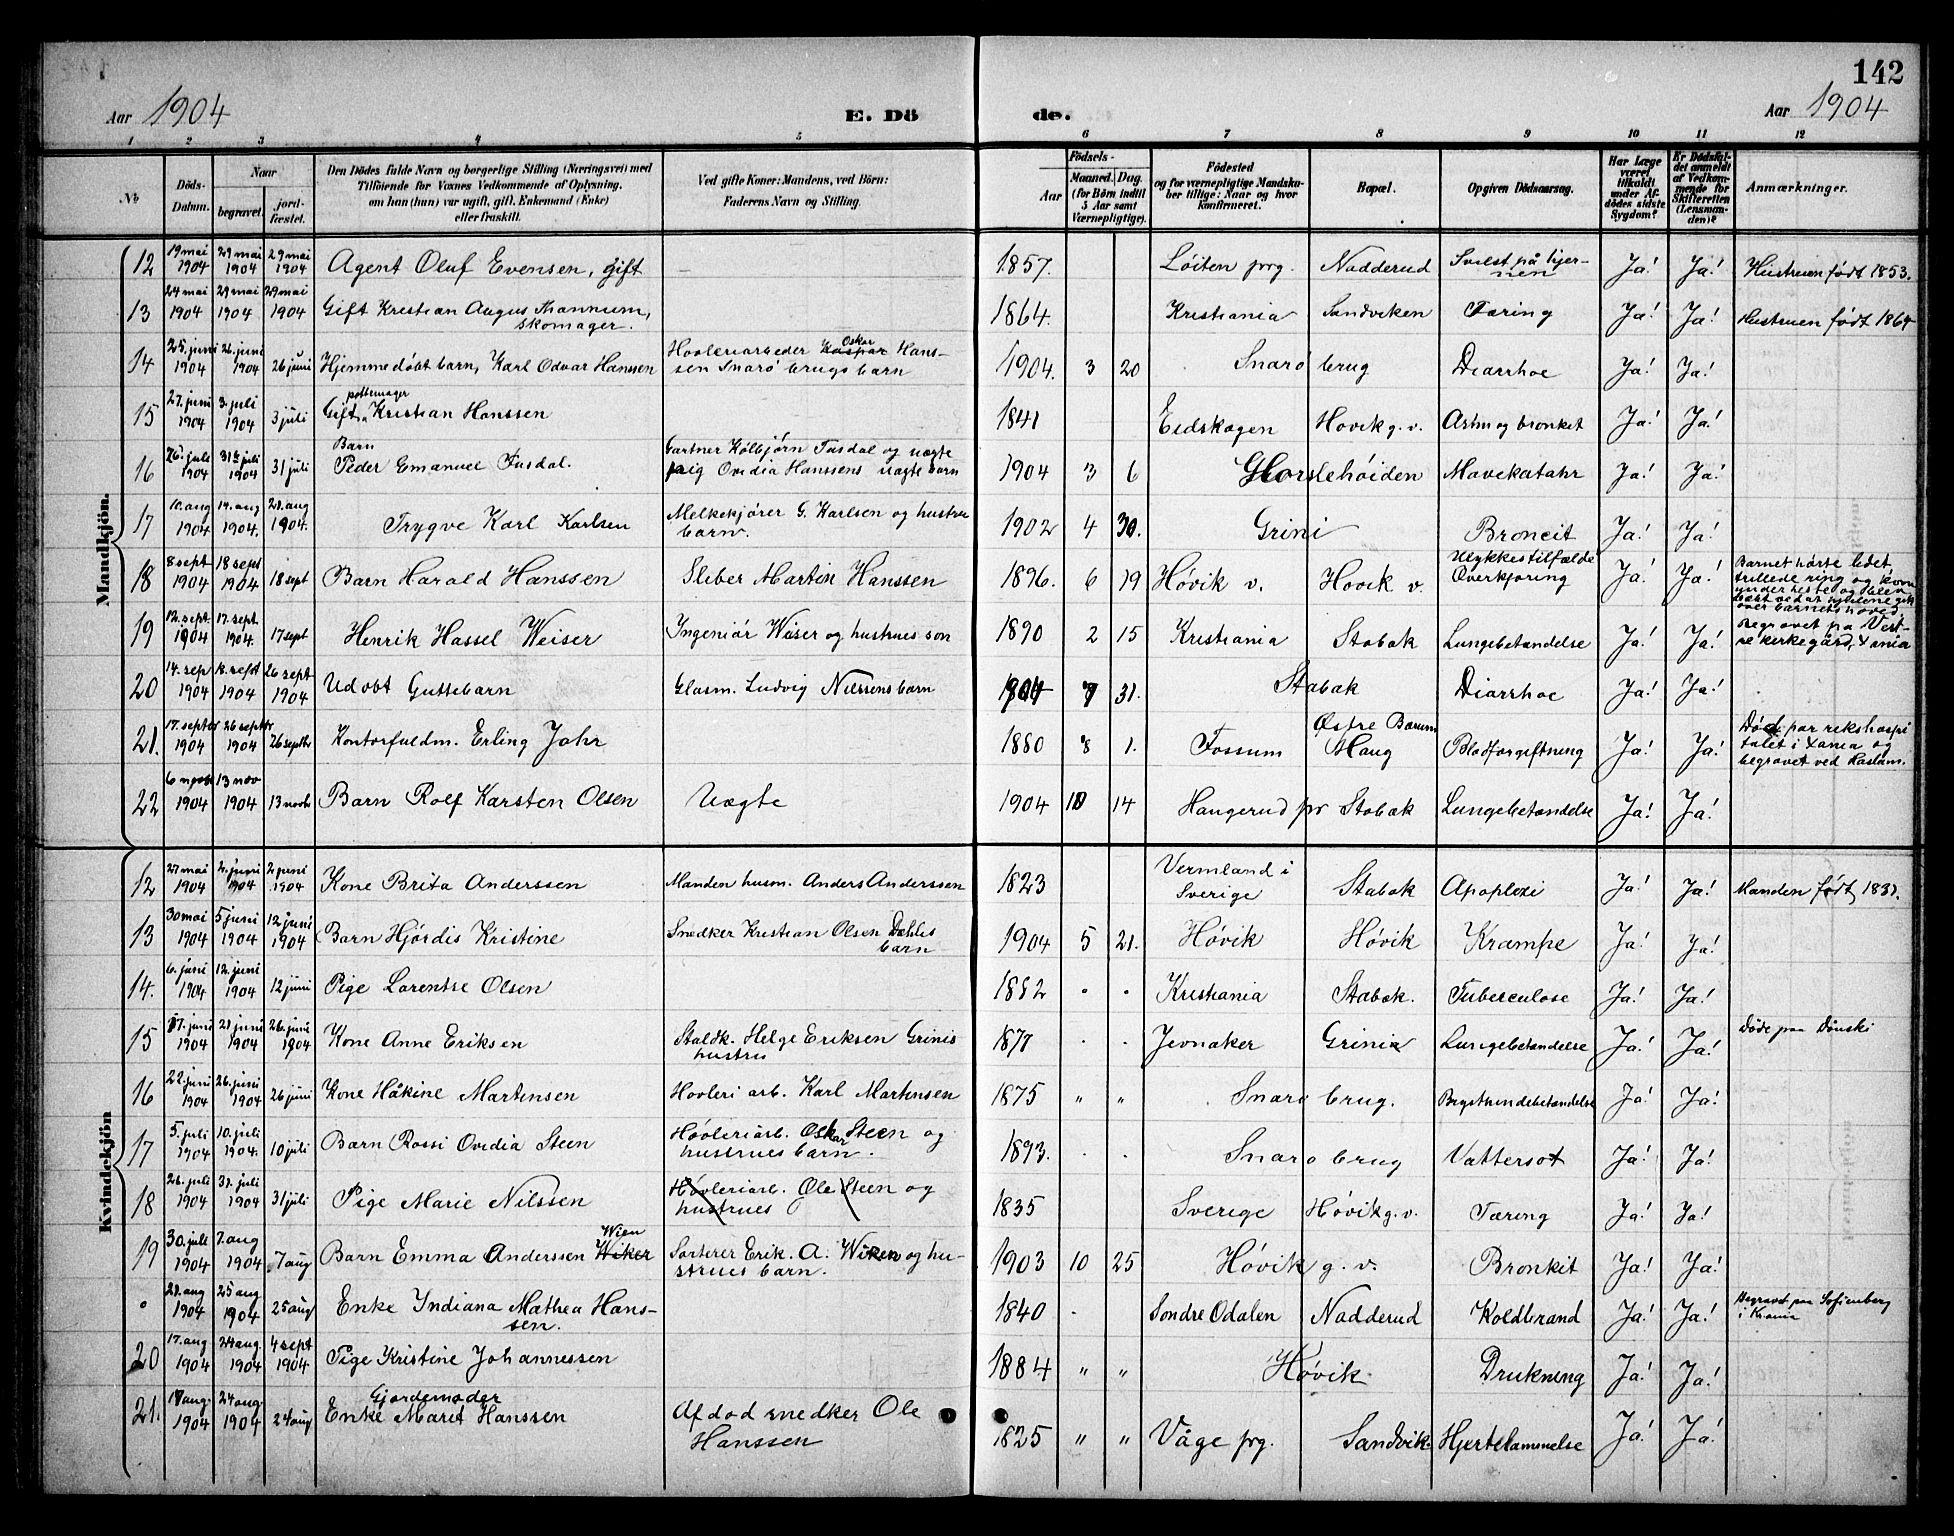 142
Aar 1904 E. Dö de. Aar 1904
1 2 3 4 5 6 7 8 9 10 11 12
№ Döds-Datum. Naar begravet. jordfæstet. Den Dödes fulde Navn og borgerlige Stilling (Næringsvei) med Tilföiende for Voxnes Vedkommende af Oplysning, om han (hun) var ugift, gift, Enkemand (Enke) eller fraskilt. Ved gifte Koner: Mandens, ved Börn: Faderens Navn og Stilling. Födsels- Aar Maaned. Dag. (for Börn indtil 5 Aar samt Værnepligtige). Födested og for værnepligtige Mandskaber tillige: Naar og hvor konfirmeret. Bopæl. Opgiven Dödsaarsag. Har Læge været tilkaldt under Afdödes sidste Sygdom? Er Dödsfaldet anmeldt af Vedkommende for Skifteretten (Lensmanden)? Anmærkninger.
Mandkjön.
12 19 mai 1904 29 mai 1904 29 mai 1904 Agent Oluf Evensen, gift — 1857. Löiten prg. Nadderud Svulst på hjernen Ja! Ja! Hustruen født 1853.
13 24 mai 1904 29 mai 1904 29 mai 1904 Gift Kristian Augus Thannum, skomager. 1864. Kristiania Sandviken Tæring Ja! Ja! Hustruen født 1864
14 25. juni 1904 26. juni 1904 26 juni Hjemmedøbt barn, Karl Odvar Hanssen Høvleriarbeder Kaspar Oskar Hanssen Snarø brugs barn 1904. 3 20 Snarø brug Diarrhoe Ja! Ja!
15 27. juni 1904 3. juli 1904 3 juli Gift pottemager Kristian Hanssen 1841 Eidskogen Høvik g. v. Astm og bronket Ja! Ja!
16 26. juli 1904 31te juli 1904 31 juli Barn Peder Emanuel Tusdal. Gartner Kolbjørn Tusdal og uægte pig Ovidia Hanssens uægte barn 1904 3 6 Gorslehøiden Mavekatahr Ja! Ja!
17 10. aug 1904 14. aug 1904. 21. aug 1904. Trygve Karl Karlsen Melkekjører G. Karlsen og hustru barn. 1902 4 30. Grini Broncit Ja! Ja!
18 8 sept 1904 18 sept 1904 18 sept Barn Harald Hanssen Sliber Martin Hanssen 1896. 6 19 Høvik v. Høvik v. Ulykkestilfælde Overkjøring Ja! Ja! Barnet hørte ledet, trillede ring og kom under heste og blev dræbt ved at hjulene gik over barnets hoved.
19 12. sept. 1904 17. sept. 1904. 17 sept Henrik Hassel Weiser Ingeniør Weiser og hustrues søn 1890 2 15 Kristiania Stabæk Lungebetændelse Ja! Ja! Begravet på Vestre kirkegård, Xania
20 14. sep 1904 18. sept 1904 26 sept 1904 Udøbt Guttebarn Glasm. Ludvig Nilssens barn 1904 7 31. Stabæk Diarrhoe Ja! Ja!
21. 17. septbr 1904 26 septbr 1904 26 septbr Kontorfuldm. Erling Jahr 1880 8 1. Fossum Østre Bærum Haug Blodforgiftning Ja! Ja! Død par rikshospitalet i Xania og begravet ved Haslum.
22 6 novbr 1904 13 nov 1904 13 novb Barn Rolf Karsten Olsen Uægte 1904 10 14 Haugerud pr Stabæk Lungebetændelse Ja! Ja!
Kvindekjön
12 27 mai 1904 2. juni 1904 2 juni 1904 Kone Brita Anderssen Manden husm. Anders Anderssen 1823 Vermland i Sverige Stabæk Apoplexi Ja! Ja! Manden født, 1831.
13 30 mai 1904 5 juni 1904 12 juni 1904 Barn Hjördis Kristine Snedker Kristian Olsen Dæhlis barn 1904 5 21. Høvik Høvik Krampe Ja! Ja!
14. 6. juni 1904 12. juni 1904 12 juni Pige Lorentse Olsen 1882 Kristiania Stabæk. Tuberculose Ja! Ja!
15 17. juni 1904 21 juni 1904 26. juni 1904 Kone Anne Eriksen Staldk. Helge Eriksen Grinis hustru 1877 Jevnaker Grini Lungebetændelse Ja! Ja! Døde paa Dønski
16 22. juni 1904 26. juni 1904 26 juni Kone Håkine Martensen Høvleri arb. Karl Martensen 1875 " " Snarø brug. Bugstrindebetændelse Ja! Ja!
17 5. juli 1904 10. juli 1904. 10 juli Barn Rossi Ovidia Steen Høvleriarb. Oskar Steen og hustrues barn. 1893. Snarø brug Vattersot Ja! Ja!
18 26. juli 1904 31. juli 1904 31 juli Pige Marie Nilssen Høvleriarb. Ole Steen og hustrues 1835 Sverige Høvik g. v. Tæring Ja! Ja!
19 30. juli 1904 7. aug 1904 7 aug Barn Emma Anderssen Wiker Wien Sorterer Erik. A. Wiken og hustrues barn. 1903 10 25 Høvik g. v. Bronkit Ja! Ja!
21. aug 1904 25 aug 1904 25 aug Enke Indiana Mathea Hanssen. 1840 Søndre Odalen Nadderud Koldbrand Ja! Ja! Begravet paa Sofienberg i Krania
20 17. aug 1904 24 aug 1904 4 sept 1904 Pige Kristine Johannessen 1884 " " Høvik Drukning Ja! Ja!
21. 17 aug. 1904 24 aug 1904 24 aug Gjordemoder Enke Maret Hanssen Afdød snedker Ole Hanssen 1825 " " Våge prg. Sandvik. Hjertelammelse Ja! Ja!